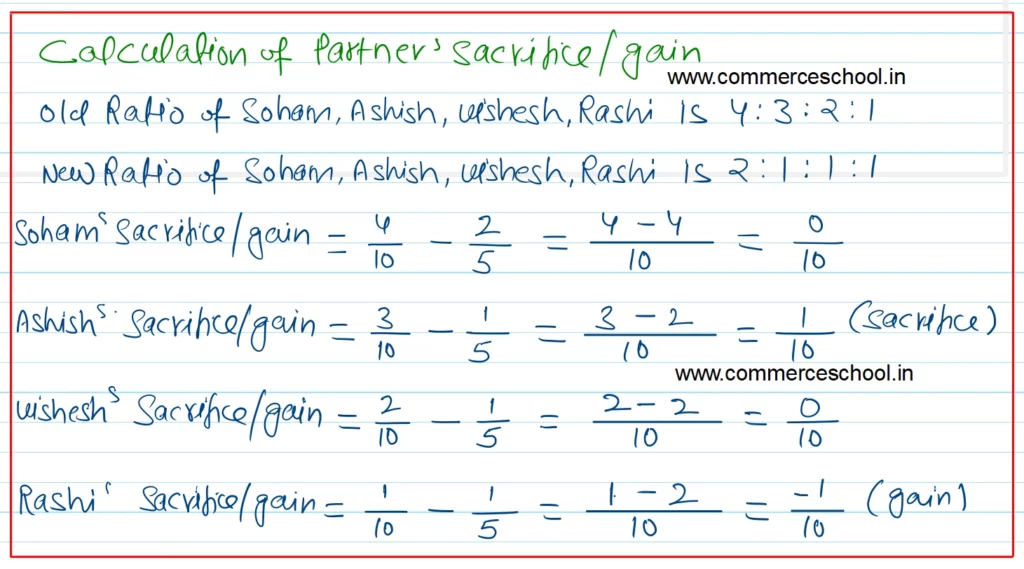 Calculation of Partner's Sacrifice/gain
www.commerceschool.in
Old Ratio of Soham, Ashish, Vishesh, Rashi is 4:3:2:1
New Ratio of Soham, Ashish, Vishesh, Rashi is 2:1:1:1
Soham's Sacrifice/gain = 4/10 - 2/5 = 4-4/10 = 0/10
Ashish's Sacrifice/gain = 3/10 - 1/5 = 3-2/10 = 1/10 (Sacrifice)
www.commerceschool.in
Vishesh's Sacrifice/gain = 2/10 - 1/5 = 2-2/10 = 0/10
Rashi' Sacrifice/gain = 1/10 - 1/5 = 1-2/10 = -1/10 (gain)